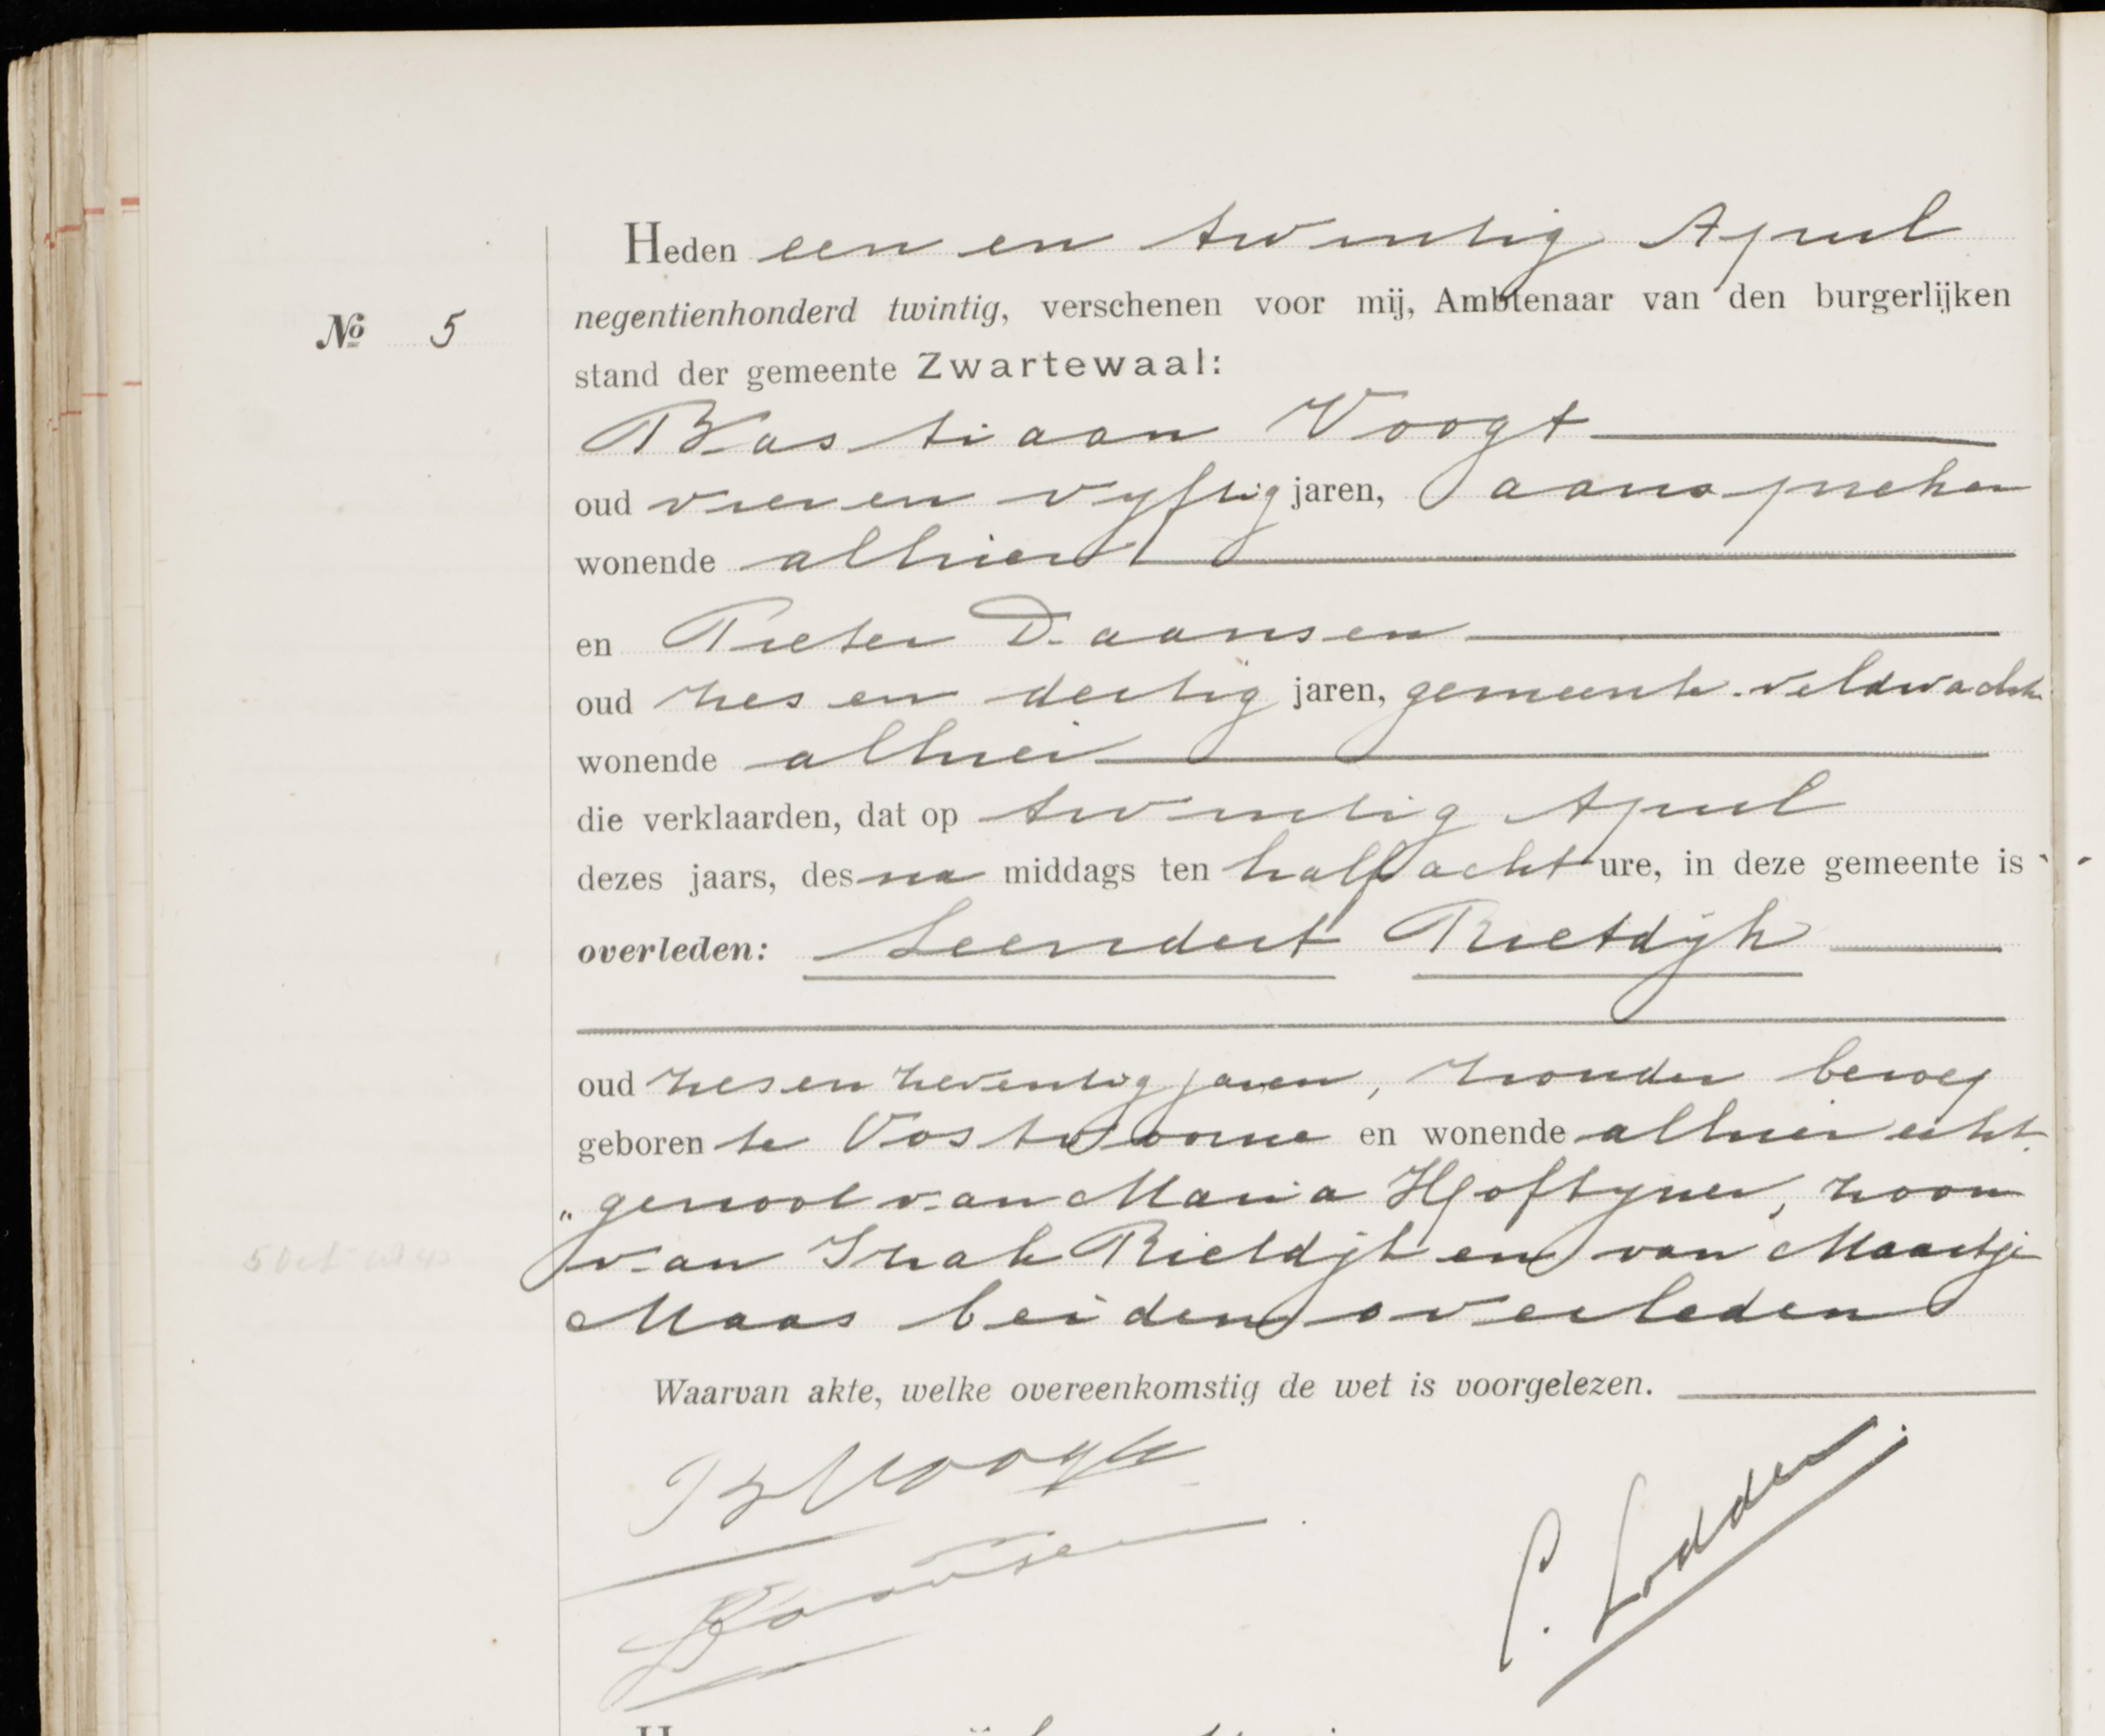 Heden een en twintig April
negentienhonderd twintig, verschenen voor mij, Ambtenaar van den burgerlijken
No 5
stand der gemeente Zwartewaal:
Bastiaan Voogt
oud vier en vyftig jaren, aanspreker
wonende alhier
en Pieter Daansen
oud zes en dertig jaren, gemeente-veldwachter
wonende alhier
die verklaarden, dat op twintig April
dezes jaars, des na middags ten half acht ure, in deze gemeente is
overleden: Leendert Rietdijk
oud zes en zeventig jaren, zonder beroep
geboren te Oostvoorne en wonende alhier echt-
„genoot van Maria Hoftyzer, zoon
van Izak Rietdijk en van Maartje
Maas beiden overleden
Waarvan akte, welke overeenkomstig de wet is voorgelezen.
B Voogt
Daansen
P. Lodder